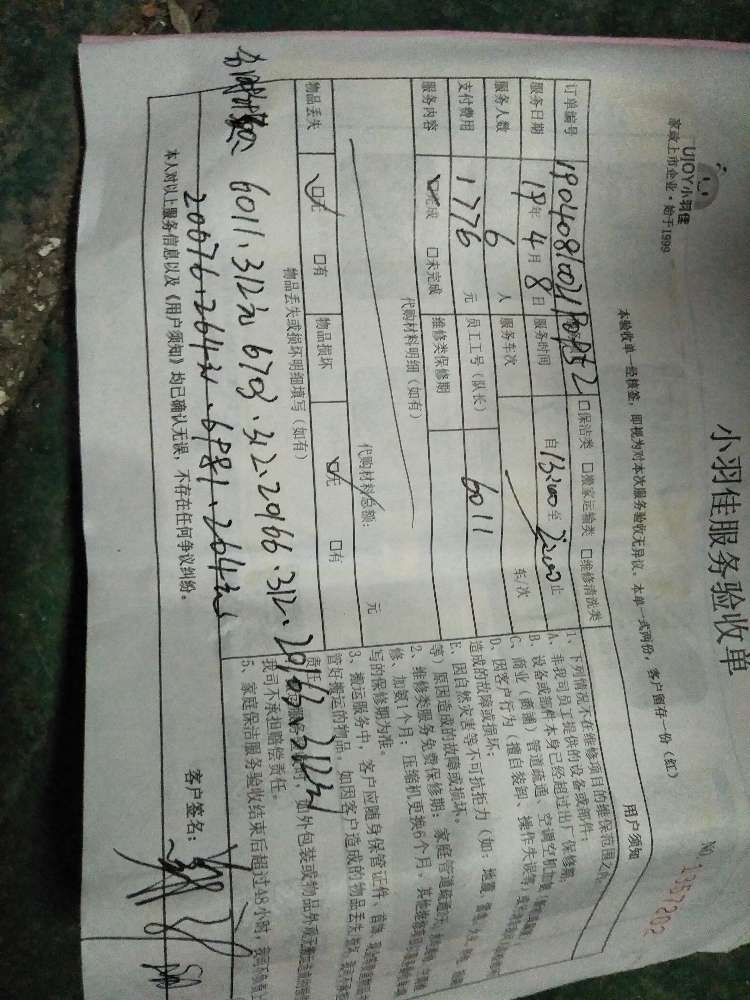 UJOY小羽佳
家政上市企业·始于1999
小羽佳服务验收单
No 1357202
本验收单一经核签，即视为对本次服务验收无异议。本单一式两份，客户留存一份（红）
订单编号
□保洁类 □搬家运输类 □维修清洗类
服务日期 19年4月8日 服务时间 自13:00至 止
服务人数 6 人 服务车次 车/次
支付费用 1776 元 员工工号（队长） 6011
服务内容 □完成 □未完成 维修类保修期
代购材料明细（如有）
代购材料总额： 元
物品丢失 □无 □有 物品损坏 □无 □有
物品丢失或损坏明细填写（如有）
6011.312元 6703.312.20166.312.20163.312元
20076.264元.6981.264元
本人对以上服务信息以及《用户须知》均已确认无误，不存在任何争议纠纷。
客户签名：
用户须知
1、下列情况不在维修项目的维保范围之内：
A、非我司员工提供的设备或部件；
B、设备或部件本身已经超过出厂保修期；
C、商业（酒铺）管道疏通、空调空机加氟
D、因客户行为（擅自装卸、操作失误等）
造成的故障或损坏；
E、因自然灾害等不可抗拒力（如：地震、雷击、火灾、
等）原因造成的故障或损坏。
2、维修类服务免费保修期：家庭管道疏通
修、加氟1个月；压缩机更换6个月，其他
写的保修期为准。
3、搬运服务中，客户应随身保管证件、首饰、
管好搬运的物品，如因客户造成的物品丢失
责任
如外包装或物品外观无搬运造成的
我司不承担赔偿责任。
5、家庭保洁服务验收结束后超过48小时，我司不负责